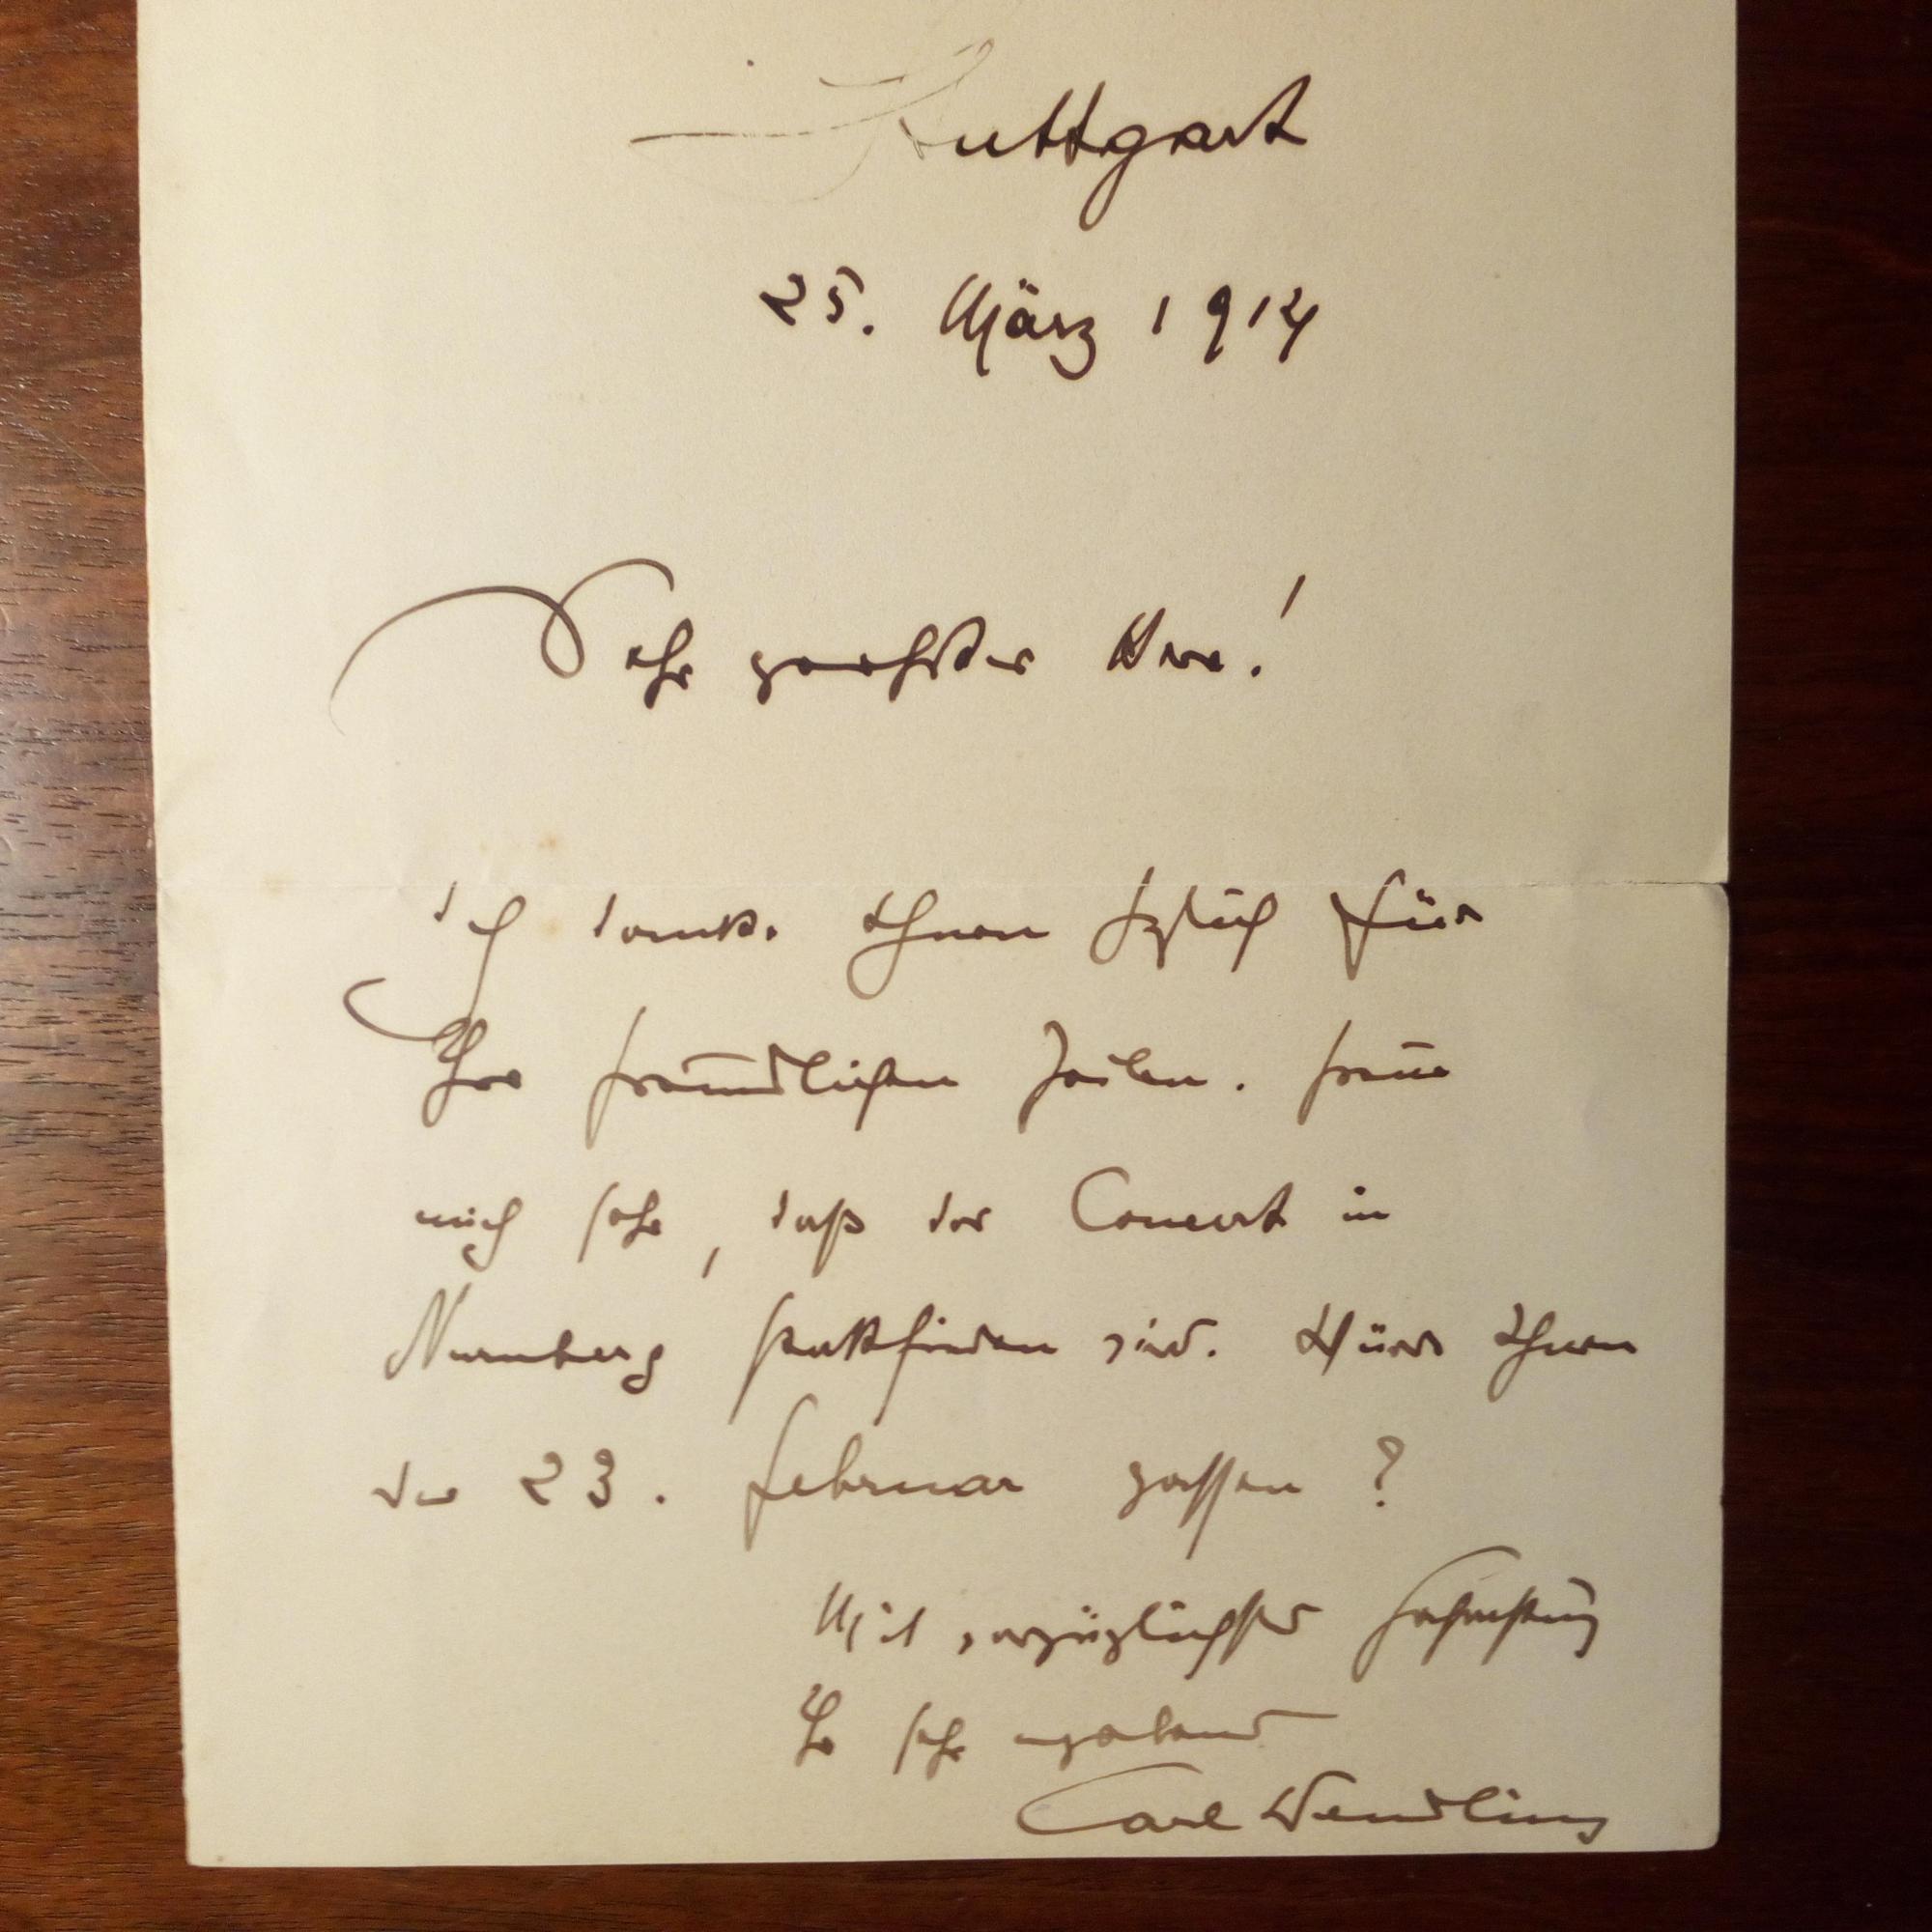 Stuttgart
25. März 1914
Sehr geehrter Herr!
Ich danke Ihnen hzlich für
Ihre freundlichen Zeilen. Freue
mich sehr, daß das Concert in
Nürnberg stattfinden wird. Würde Ihnen
der 23. Februar passen?
Mit vorzüglichster Hochachtung
Ihr sehr ergebener
Carl Wendling